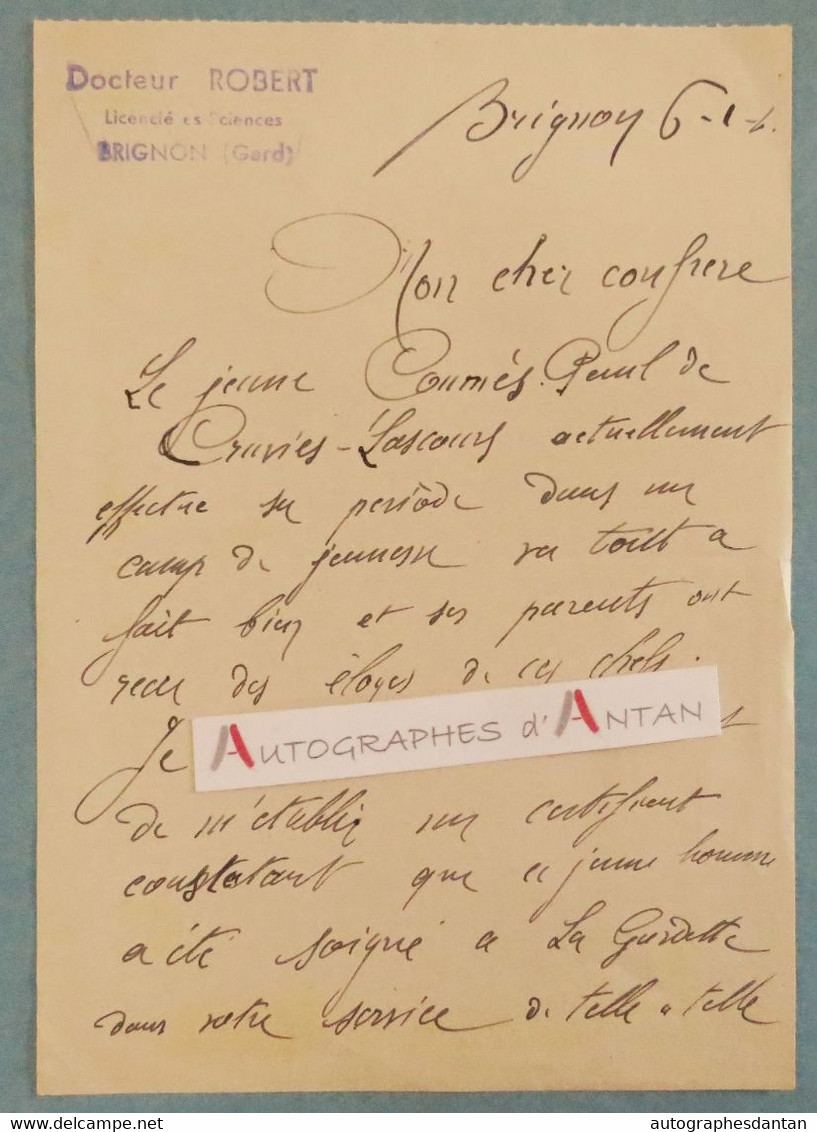 Docteur ROBERT
Licencié es Sciences
BRIGNON (Gard)
Brignon 6-1-
Mon cher confrere
Le jeune Coumés Paul de
Cruvies-Lascours actuellement
effectue sa periòde dans un
camp de jeunesse va tout a
fait bien et ses parents ont
recu des éloges de ces chefs.
Je
AUTOGRAPHES d'ANTAN
de m'etablir un certificat
constatant que ce jeune homme
a été soigné a La Gardette
dans votre service de telle a telle
autographesdantan
www.delcampe.net